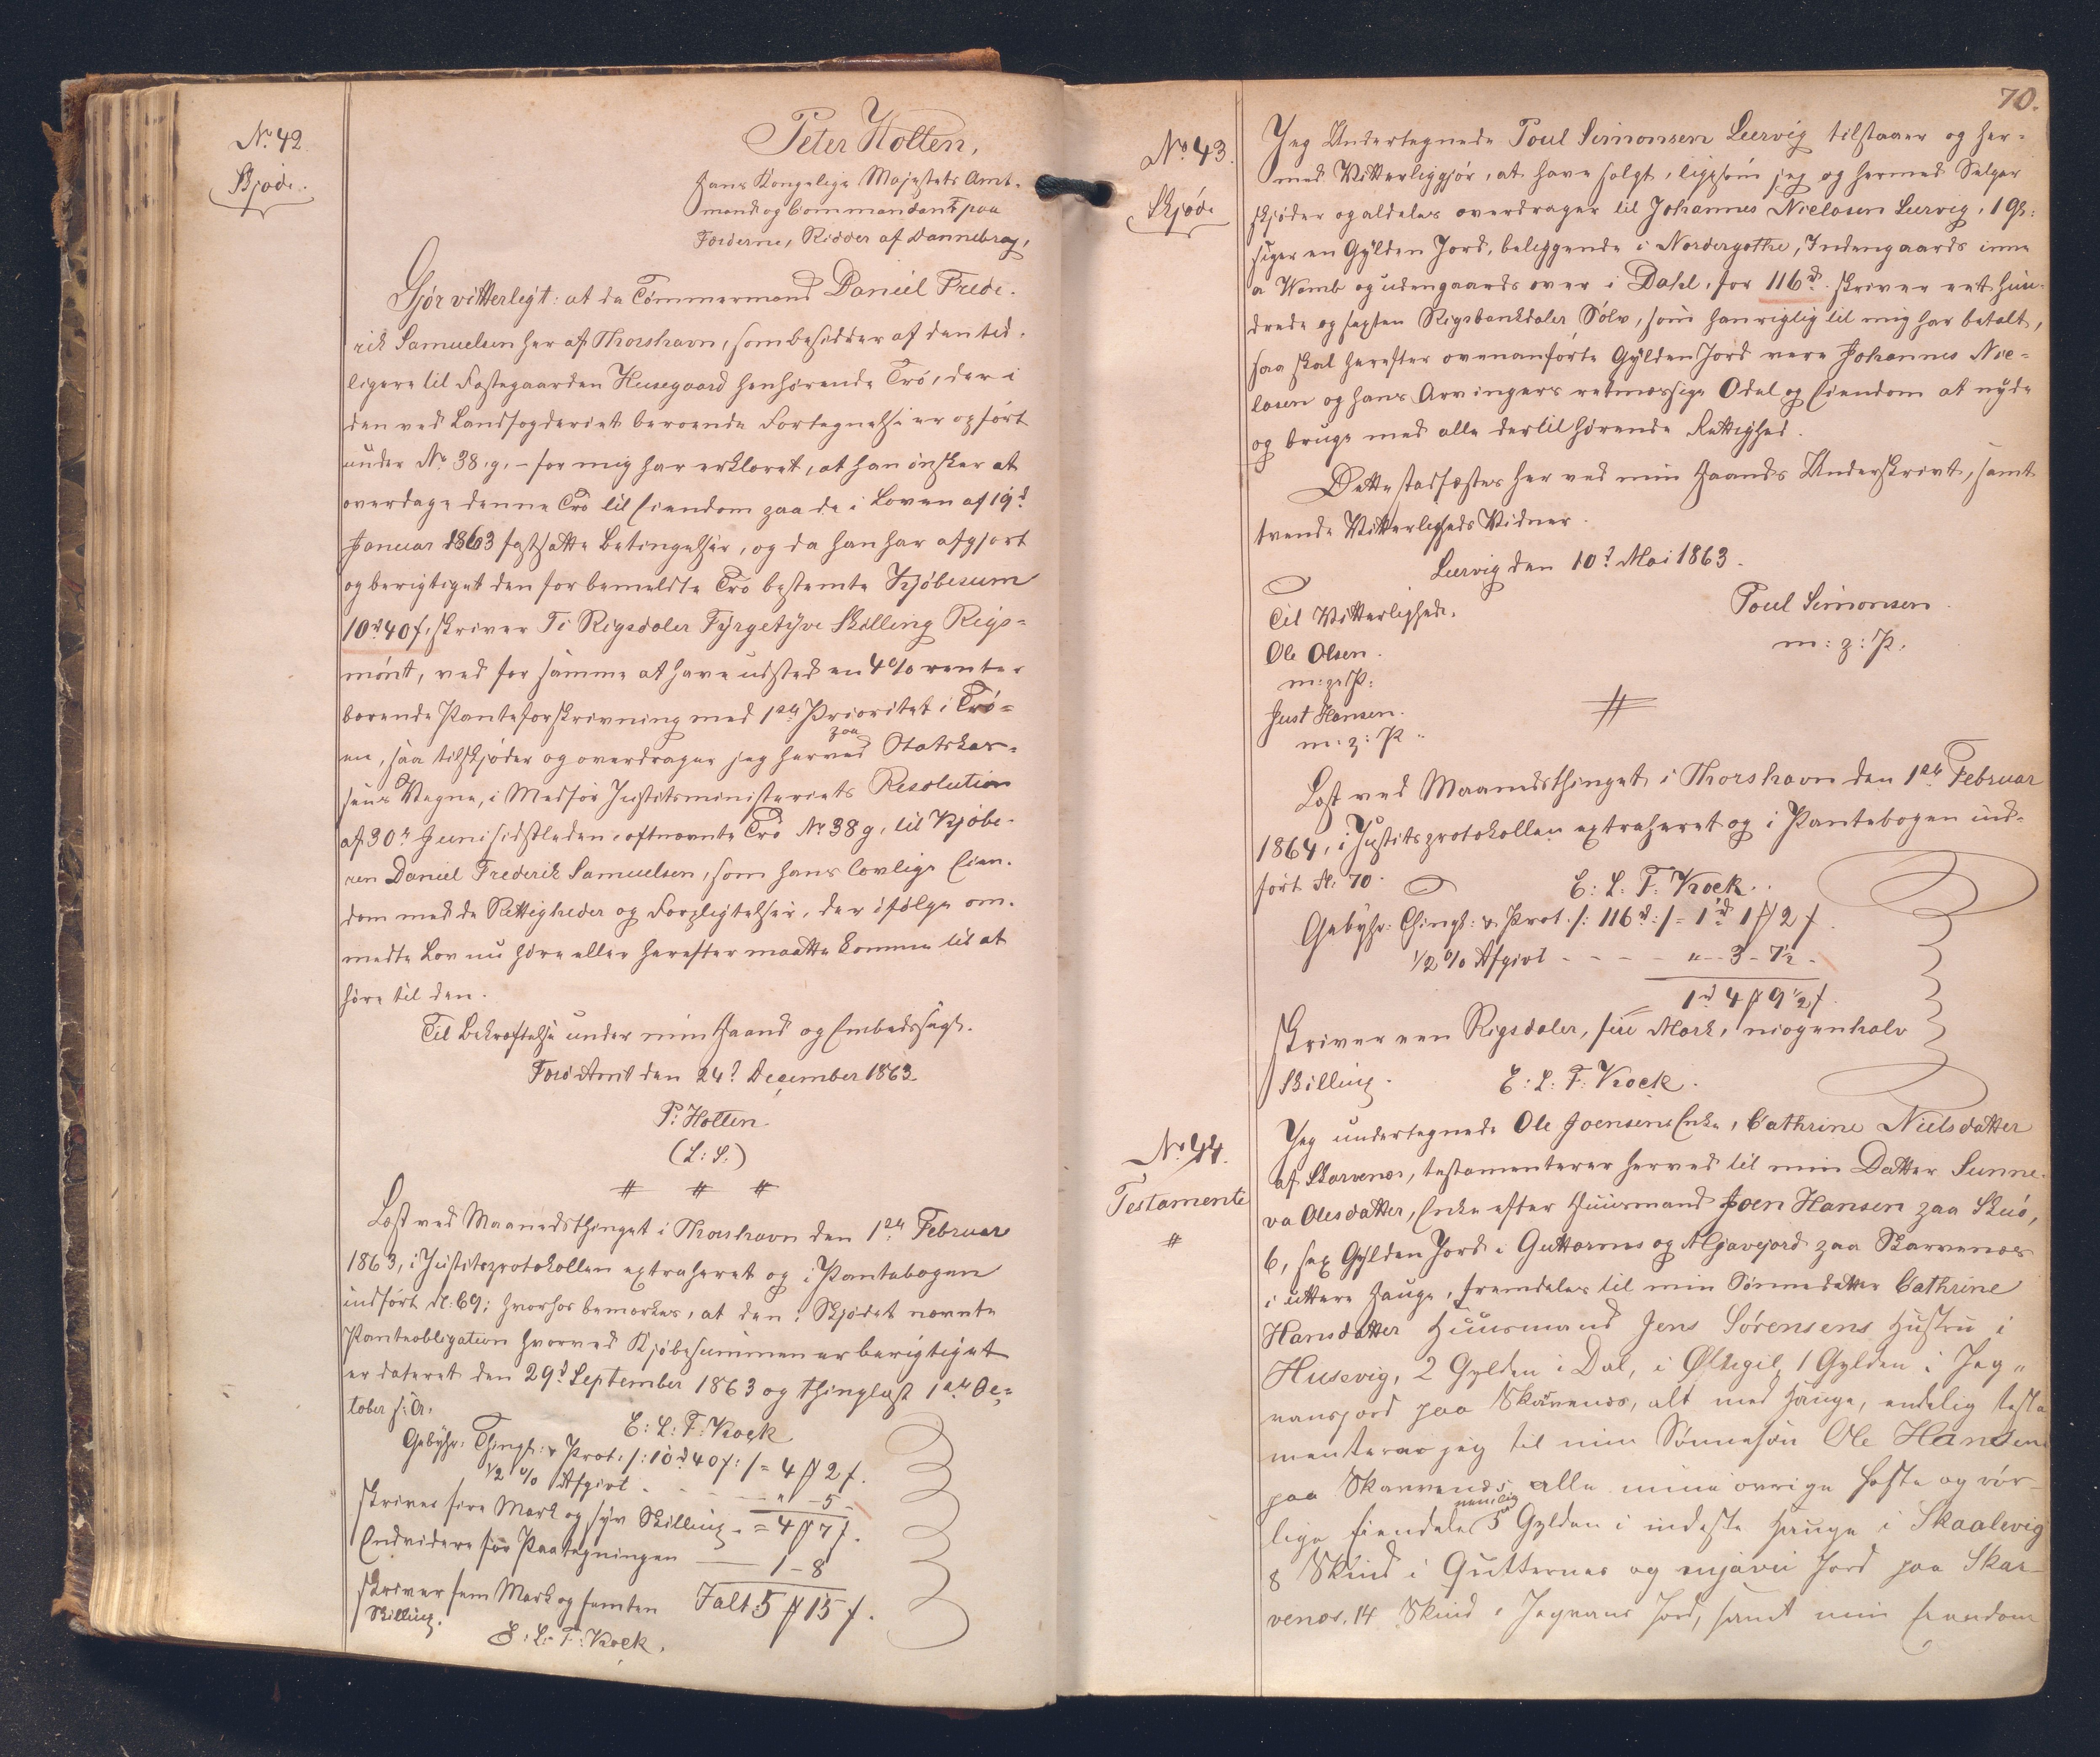 No. 42
Skjøde.
Peter Holten,
Hans Kongelige Majestets Amt-
mand og Commandant paa
Færøerne, Ridder af Dannebrog,
Gjør vitterligt: at da Tømmermand Daniel Frede-
rik Samuelsen her af Thorshavn, som besidder af den tid-
ligere til Fæstegaarden Husegaard henhørende Trø, der i
den ved Landfogderiet beroende Fortegnelse er opført
under No. 38.g. - for mig har erklæret, at han ønsker at
overdage denne Trø til Eiendom paa de i Loven af 19d
Januar 1863 fastsatte Betingelser, og da han har afgjort
og berigtiget den for bemeldte Trø bestemte Kjøbesum
10rd 40ſ, skriver Ti Rigsdaler Fyrgetyve Skilling Rigs-
mönt, ved for samme at have udsted en 4% rente-
bærende Panteforskrivning med 1ste Prioritet i Trø-
en, saa tilskjøder og overdrager jeg herved paa Statskas-
sens Vegne, i Medfør Justitsministeriets Resolution
af 30te Juni sidstleden, oftnævnte Trø No. 38 g, til Kjøbe-
ren Daniel Frederik Samuelsen, som hans lovlige Eien-
dom med de Rettigheder og Forpligtelser, der ifølge om-
meldte Lov nu høre eller herefter maatte komme til at
høre til den.
Til Bekræftelse under min Haand og Embedssegl.
Færø Amt den 24d December 1863.
P. Holten.
(L: S:)
# # #
Læst ved Maanedsthinget i Thorshavn den 1ste Februar
1863, i Justitsprotokollen extraheret og i Pantebogen
indført Fl: 69; hvorhos bemærkes, at den i Skjødet nævnte
Panteobligation hvorved Kjøbesummen er berigtiget
er dateret den 29d September 1863 og thinglæst 1ste Oc-
tober s: A.
E: L: F: Krock
Gebyhr: Thingl: & Prot: /: 10rd 40ſ: / = 4 ℳ 2 ſ.
1/2 % Afgivt - - - " - 5 -
skriver fire Mark og syv Skilling. = 4 ℳ 7 ſ.
Endvidere for Paategningen — 1 - 8
skriver fem Mark og femten Ialt: 5 ℳ 15 ſ.
Skilling.
E: L: F: Krock.
70.
No. 43.
Skjøde
Jeg Undertegnede Poul Simonsen Leervig tilstaaer og her-
med Vitterliggjør, at have solgt, ligesom jeg og hermed Sælger
skjøder og aldeles overdrager til Johannes Nielasen Leervig, 1 G:
siger en Gylden Jord, beliggende i Nordergothe, Indengaards inne
a Wamb og udengaards over i Dahl, for 116rd skriver eet hun-
drede og sexten Rigsbankdaler Sølv, som han rigtig til mig har betalt,
saa skal herefter ovenanførte Gylden Jord være Johannes Nie-
lasen og hans Arvingers retmæssige Odel og Eiendom at nyde
og bruge med alle dertil hørende Rettighed.
Dette stadfæstes her ved min Haands Underskrivt, samt
tvende Vitterligheds Vidner.
Leervig den 10d Mai 1863.
Til Vitterlighed.
Poul Simonsen
m: p: P.
Ole Olsen.
m: p: P:
Just Hansen.
m: p: P.
#
Læst ved Maanedsthinget i Thorshavn den 1ste Februar
1864, i Justitsprotokollen extraheret og i Pantebogen ind-
ført Fl: 70.
E: L: F: Krock.
Gebyhr: Thingl: & Prot. /: 116rd: / = 1rd 1 ℳ 2 ſ
1/2 % Afgivt - - - - " - 3 - 7½ -
1rd 4 ℳ 9½ ſ.
skriver een Rigsdaler, fire Mark, niogenhalv
Skilling.
E: L: F: Krock.
No. 44.
Testamente
#
Jeg undertegnede Ole Joensens Enke, Cathrine Nielsdatter
af Skarvenæs, testamenterer herved til min Datter Sunne-
va Olesdatter, Enke efter Huusmand Joen Hansen paa Skuø,
6, sex Gylden Jord i Guttorms og Aljavejord paa Skarvenæs
i uttere Hauge, fremdeles til min Sønnedatter Cathrine
Hansdatter Huusmand Jens Sørensens Hustru i
Husevig, 2 Gylden i Dal, i Øltegil, 1 Gylden i Jeg-
vansjord paa Skarvenæs, alt med Hauge, endelig testa
menterer jeg til min Sønnesøn Ole Hansen
paa Skarvenæs alle mine øvrige faste og rør-
lige Eiendele nemlig 5 Gylden i indeste Hauge i Skaalevig
8 Skind i Gutternes og enjavei Jord paa Skar-
venæs, 14 Skind i Jegvans Jord, samt min Eiendom